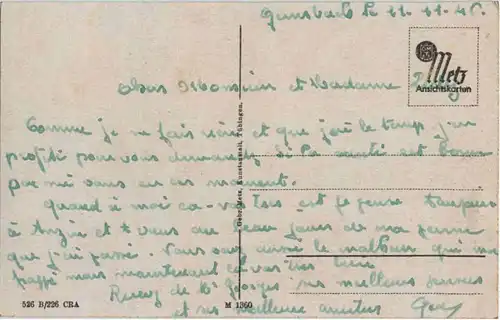 Gunsbach le 11.11.45.
Metz
Ansichtskarten
Cher Monsieur et Madame
Comme je ne fais rien et que j'ai le temps j'en
profite pour vous demander si la santé est bonne
parmi vous en ce moment.
Quand à moi ça va très et je pense toujours
à et à vous au beau jours de ma
que j'ai passé. Vous savez aussi le malheur qui m'a
frappé mais maintenant ça va très bien
Recevez de Mr Georges ses meilleurs
et ses meilleures amitiés Geo
Gebr. Metz, Kunstanstalt, Tübingen.
526 B/226 CRA
M 1360